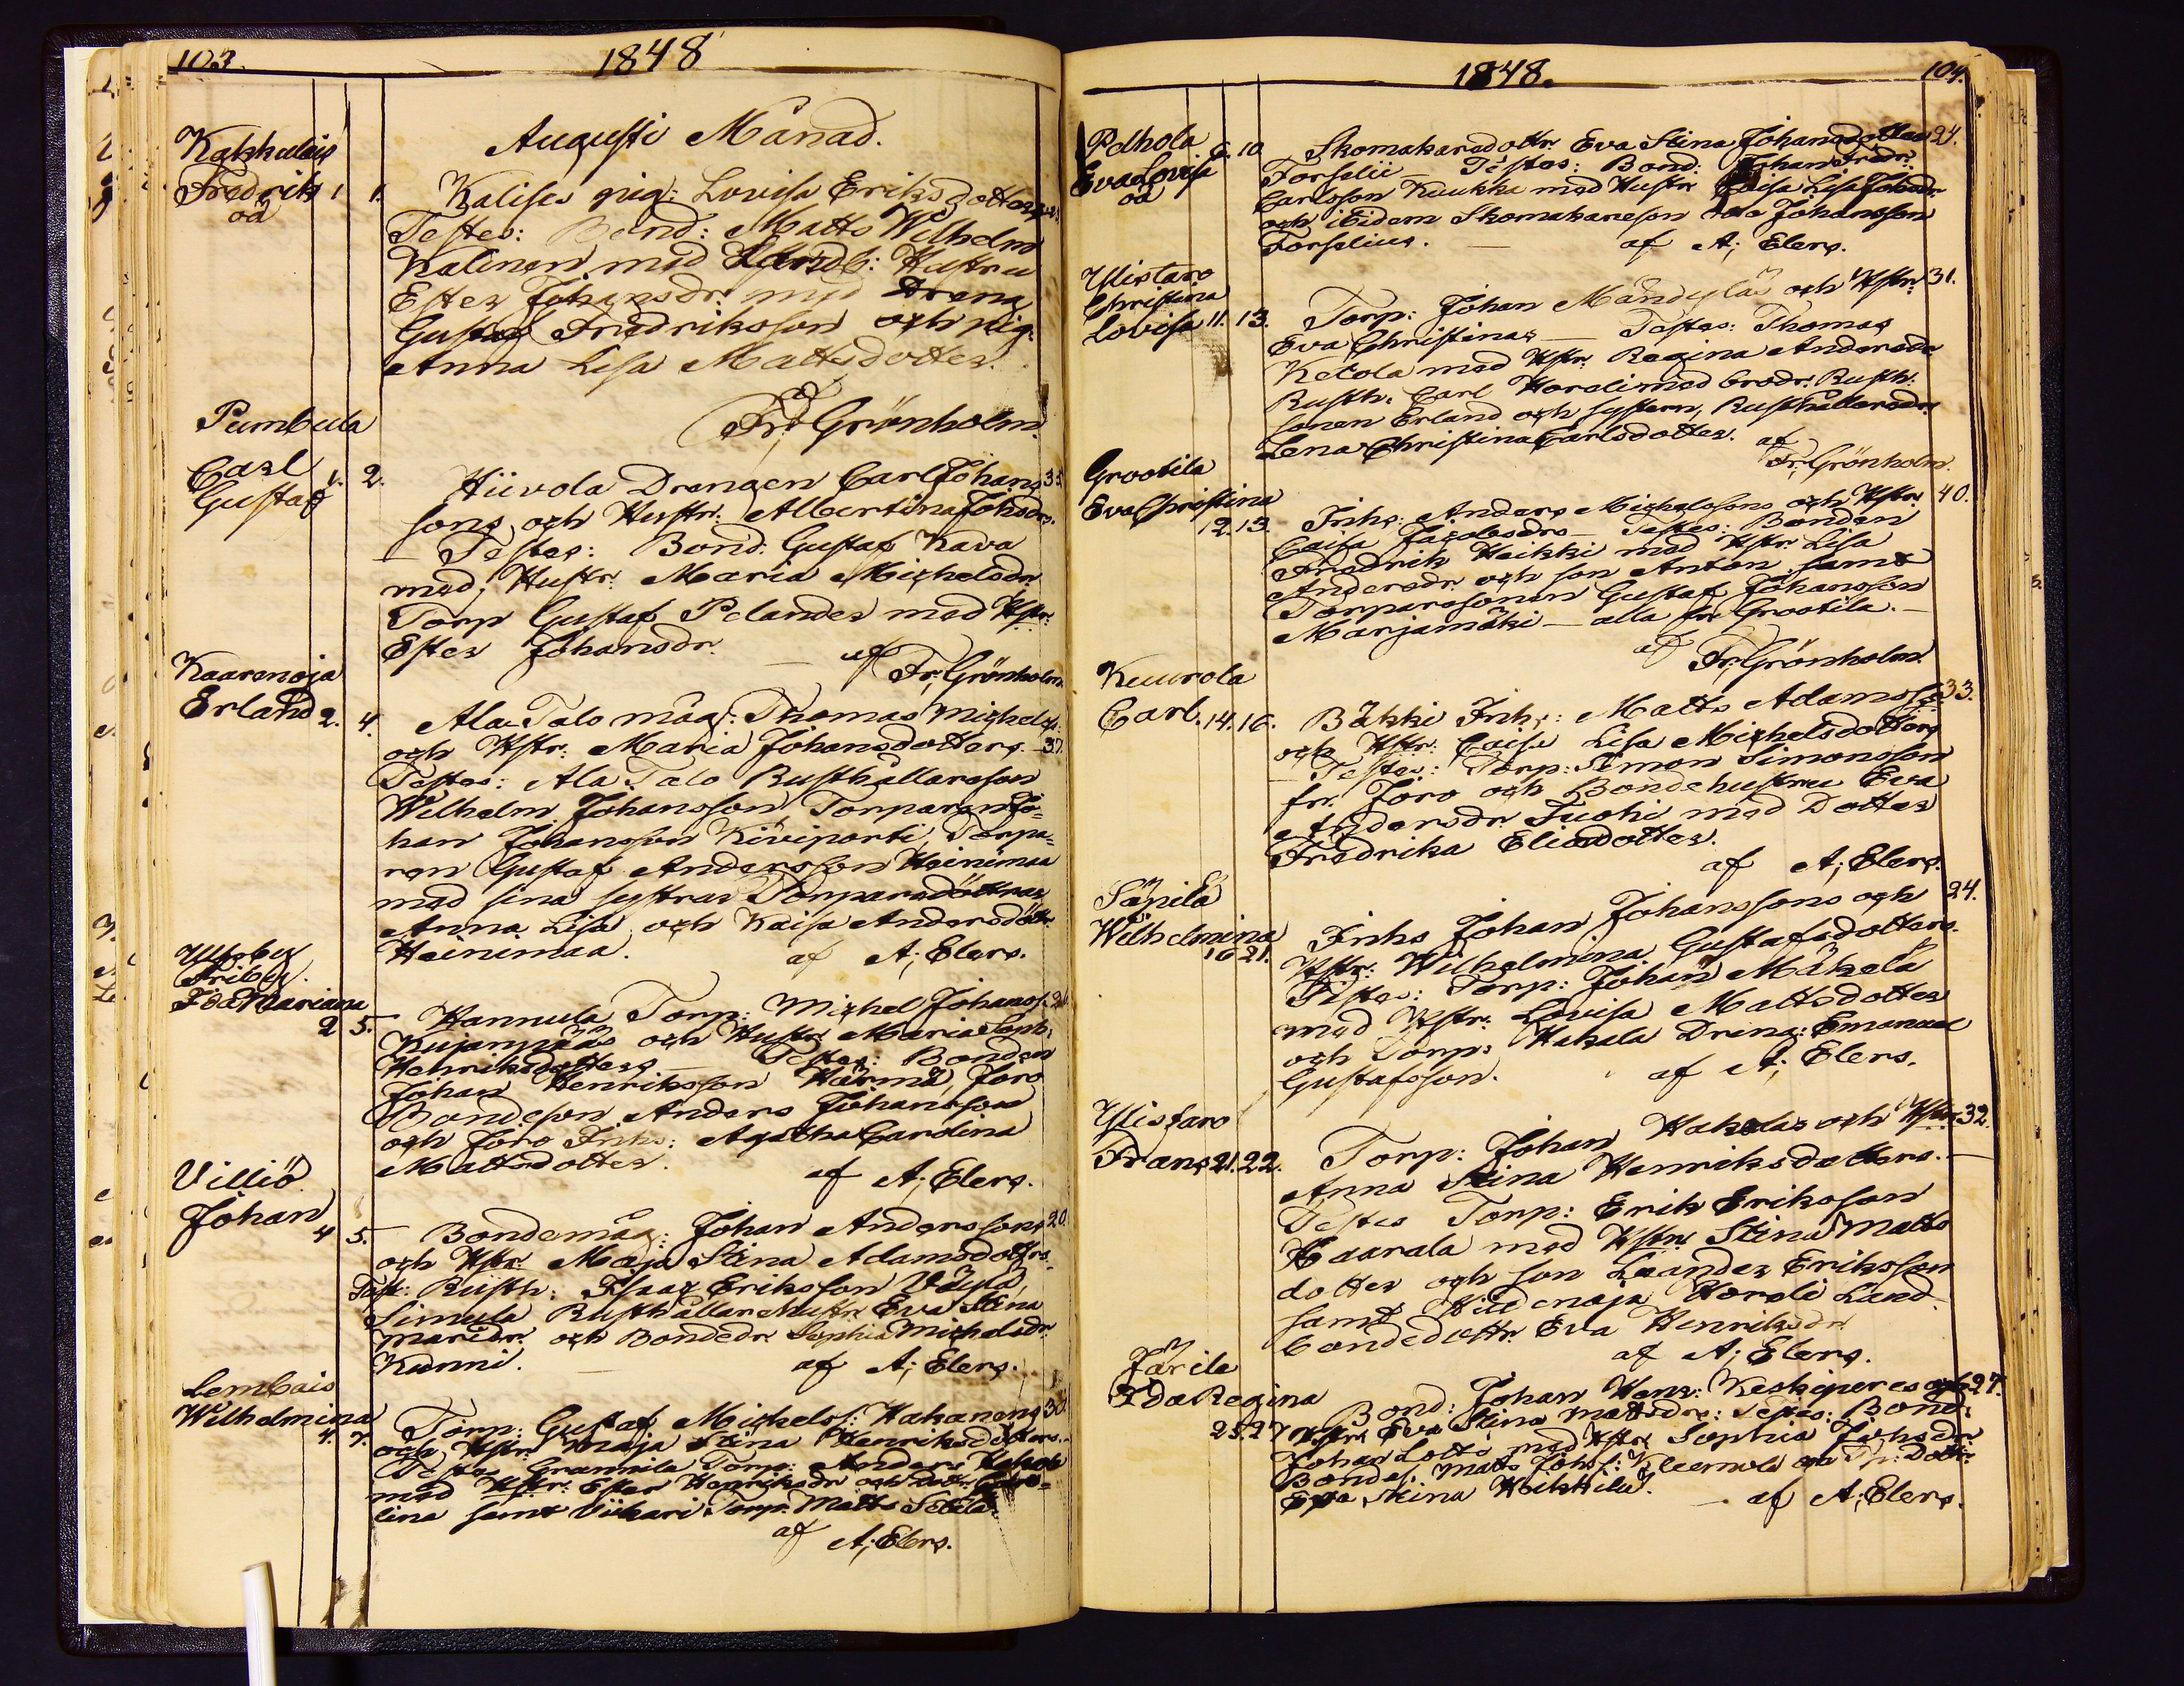 103.
1848
Augusti Månad.
Kakkulais
Fredrik 1 1. Kalises pig: Lovisa Eriksdotter
oä
Testes: Bond: Matts Wilhelm
Kalinen med Hustru
Ester Johansdr. med Dreng
Gustaf Fredriksson och pig.
Anna Lisa Mattsdotter.
af
Fr: Grönholm.
Pumbula
Carl
Gustaf 1. 2. Hiivola Drengen Carl Johans 35
sons och Hustr: Albertina Johsdrs.
– Testes: Bond: Gustaf Kava
med Hustr. Maria Michelsdr.
Torp Gustaf Pelander med Hstr:
Ester Johansdr. – af Fr: Grönholm.
Kaarenoja
Erland 2. 4. Ala Talo måg: Thomas Michels:
och Hstr. Maria Johansdotters. 37.
Testes: Ala Talo Rusthållareson
Wilhelm Johansson, Torparen Jo=
han Johansson Kiviporti, Torpa=
ren Gustaf Andersson Heinimaa
med sina systrar Torparedöttrar
Anna Lisa och Kaisa Andersdöttr.
Heinimaa. af A; Elers.
Ylisby
Friby.
Ida Mariana
2 5. Hannula Torp: Michel Johans:
Kujanpääs och Hustr Maria Soph.
Henriksdotters – Testes: Bonden
Johan Henriksson Härmä, Joro
Bondeson Anders Johansson
och Joro Inhs: Agatha Carolina
Mattsdotter. af A; Elers.
Villiö
Johan
4 5. – Bondemåg: Johan Anderssons 20.
och Hstr. Maja Stina Adamsdotters.
Test: Rusth: Isaac Eriksson Väylä,
Simula Rusthållarehustr Eva Stina
och Bondedr. Sophia Michelsdr.
Kunni. – af A; Elers.
Lembois
Wilhelmina
4. 7. Torp: Gustaf Michels: Hakanens 30.
och Hstr: Maja Stina Henriksdotters.
Testes Grannila Torp: Anders
med Hstr. Ester Henriksdr och dottr.
lina samt Viikari Torp: Matts Setälä
af A; Elers.
1848.
104.
Pelhola
Eva Lovisa 6. 10 Skomakaredottr. Eva Stina Johansdotters 24.
oä
Forselii – Testes: Bond: Johan Fredr.
Carlsson Kuukka med Hustr Caisa Lisa Johsdr.
och ibidem Skomakareson Johansson
Forselius. – af A; Elers.
Ylistaro
Christina
Lovisa 11. 13. Torp: Johan Mändylä och Hstr: 31.
Eva Christinas – Testes: Thomas
Ketola med Hstr: Regina Andersdr
Rusth: Carl Horeli med brodr. Rusth:
sonen Erland och systern, Rusthållaredr
Lena Christina Carlsdotter. af
Fr: Grönholm.
Grootila
Eva Christina
12. 13. Inhs: Anders Michelssons och Hstr. 40.
Caisa Jacobsdrs – Testes: Bonden
Fredrik Heikki med Hstr. Lisa
Andersdr. och son Anton samt
Torparesonen Gustaf Johansson
Marjamäki – alla fr Grootila. –
af Fr: Grönholm.
Kuurola
Carl. 14. 16. Bäkki Inhs: Matts Adamss: 33.
och Hstr: Caisa Lisa Michelsdotters
– Testes: Torp: Simon Simonsson
fr. Joro och Bondehustru Eva
Andersdr. Tuohi med Dotter
Fredrika Eliedotter.
af A; Elers.
Säpilä
Wilhelmina
16 21. Inhs Johan Johanssons och 24.
Hstr: Wilhelmina Gustafsdotters.
Testes: Torp: Johan Mäkelä
med Hstr. Lovisa Mattsdotter
och Torp: Hakala Dreng: Emanuel
Gustafsson. af A; Elers.
Ylistaro
Frans 21. 22. Torp: Johan Hakalas och Hstr. 32.
Anna Stina Henriksdotters. –
Testes Torp: Erik Eriksson
Haarala med Hstr. Stina Matts
dotter och son Leander Eriksson
samt Hiidenoja Horeli Land
bondedottr. Eva Henriksdr.
af A; Elers.
Järilä
Ida Regina
25. 27 Bond: Johan Henr: Keskiperes och 27.
Hstr: Eva Stina Mattsdrs: Testes: Bond:
Johan Lotti med Hstr Sophia Johsdr
Bondes. Matts Johs: och dottr
Eva Stina Heikkilä. – af A; Elers.